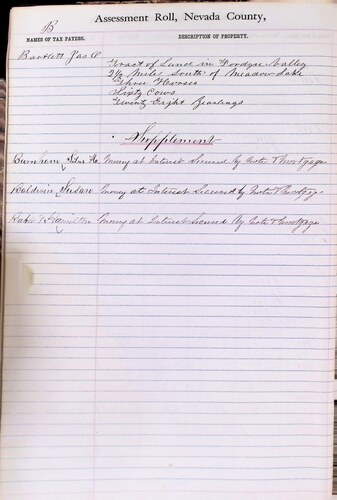 Assessment Roll, Nevada County,
B
NAMES OF TAX PAYERS.
DESCRIPTION OF PROPERTY.
Bartlett Jas A
Tract of Land in Fordyce Valley
2½ Miles South of Meadow Lake
Three Horses
Sixty Cows
Twenty Eight Yearlings
Supplement
Burnham money at Interest Secured by Note & Mortgage
Baldwin money at Interest Secured by Note & Mortgage
Hamilton money at Interest Secured by Note & Mortgage